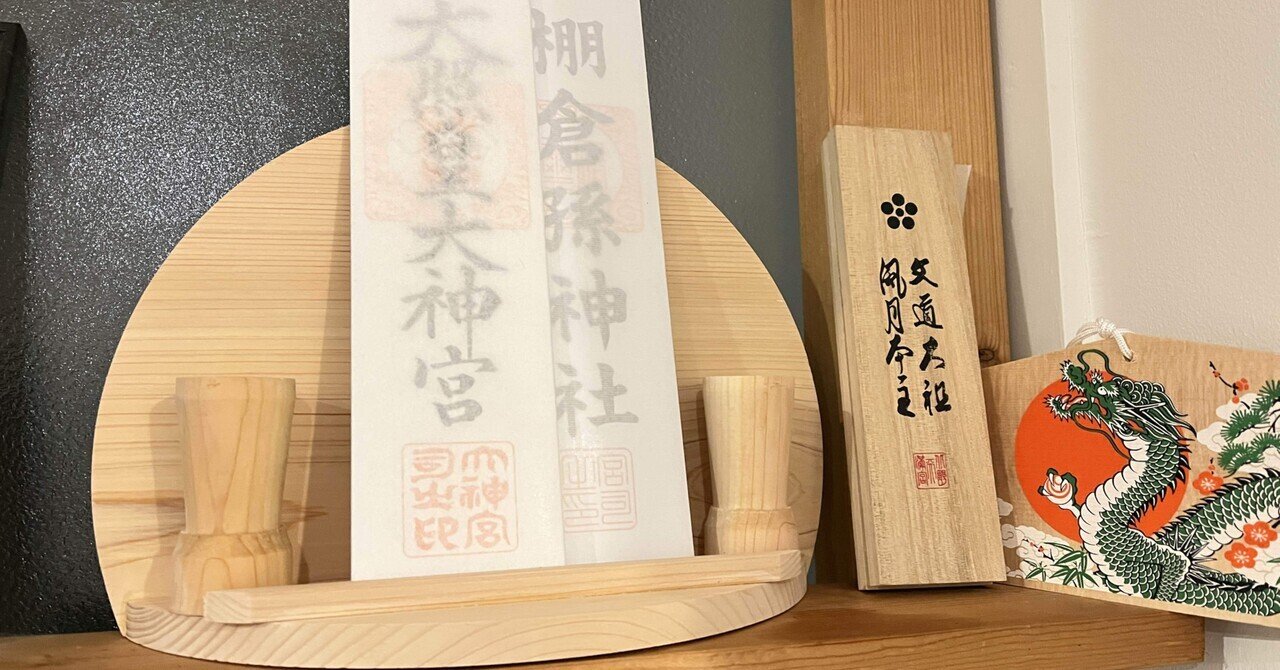 天照皇大神宮
大神宮
司之印
棚倉孫神社
宮司
之印
文道大祖
風月本主